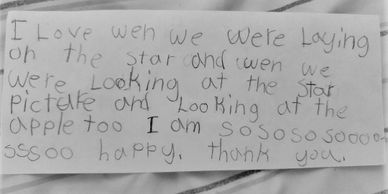 I Love weh we were Laying
oh the star and wen we
were Looking at the star
picture and Looking at the
apple too I am sosososoooo-
sssoo happy. thank you.